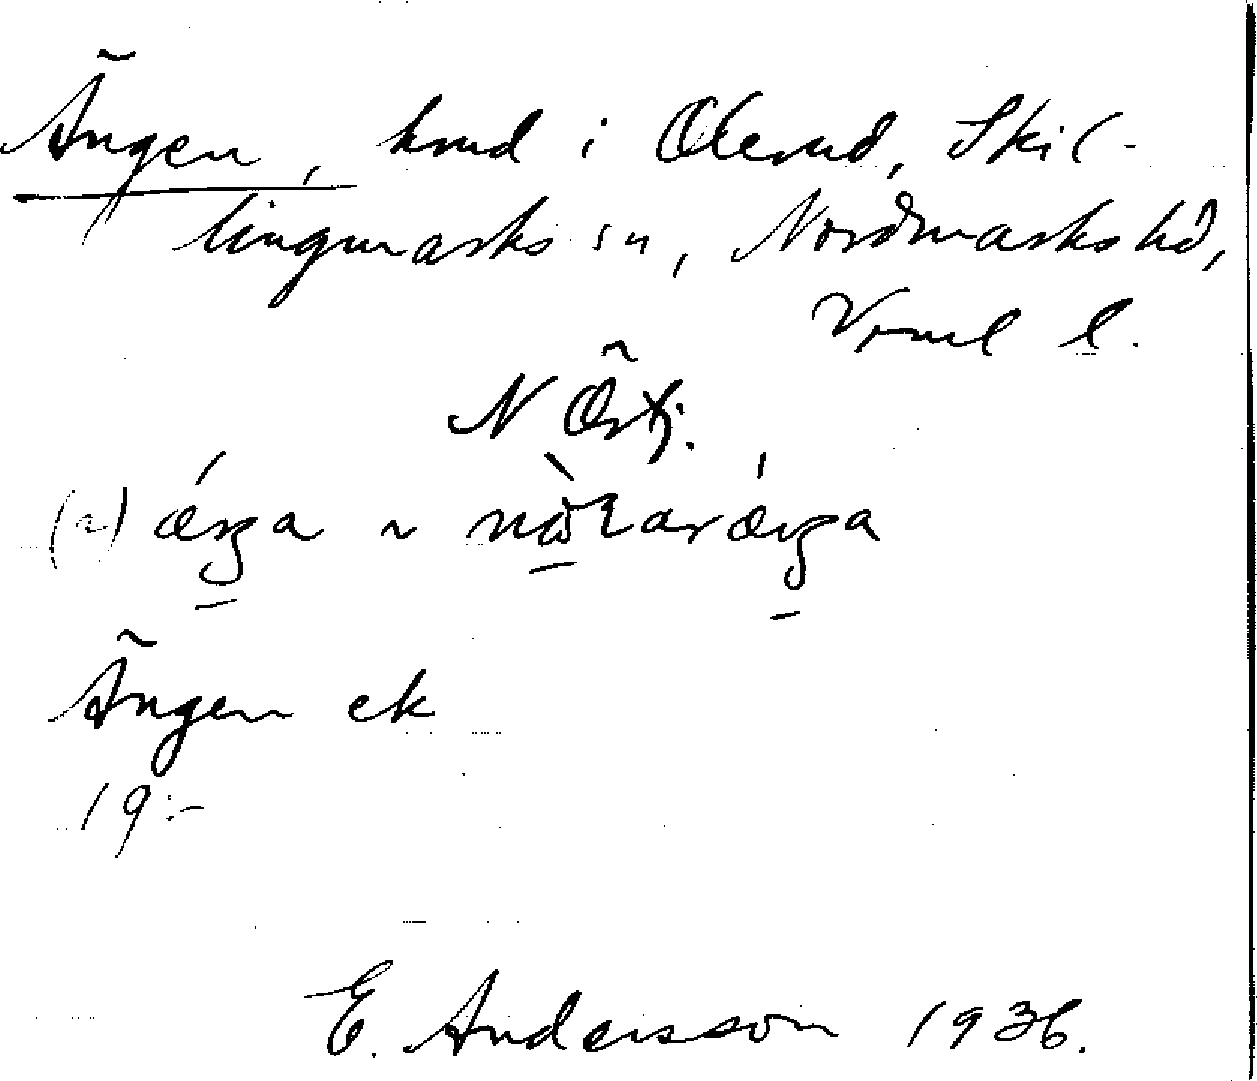 Ängen, hmd i Olerud, Skil-
lingmarks sn, Nordmarks hd,
Vrml l.
N Östj.
Ängen ek
19:-
E. Andersson 1936.